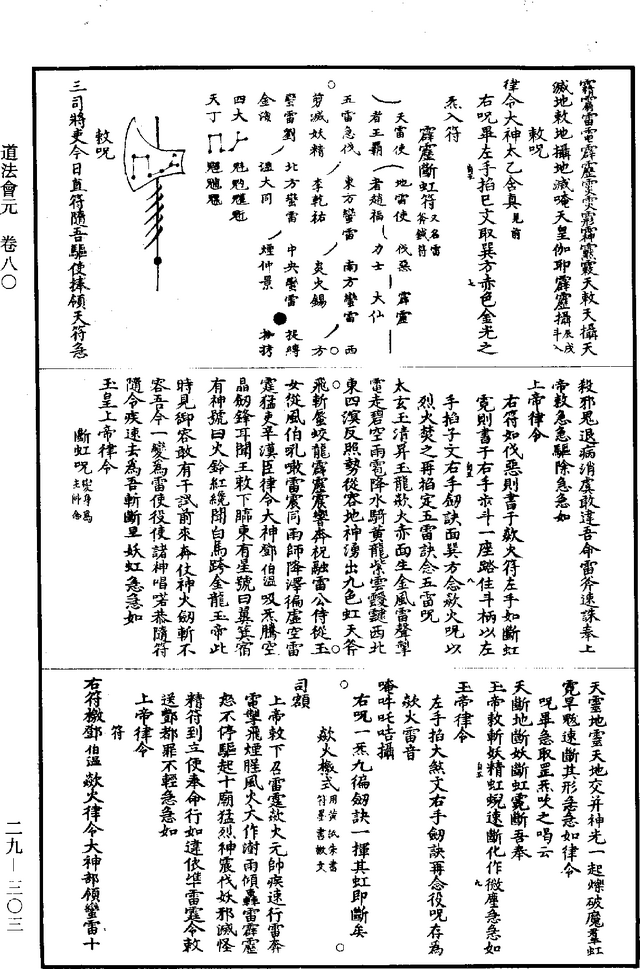 道法會元　卷八〇
二九—三〇三
滅地敕地攝地滅唵天皇伽耶霹靂攝
敕呪
律令大神太乙含真
右呪畢左手掐巳文取巽方赤色金光之
炁入符
霹靂斷虹符
天雷使　地雷使　伐惡　霹靂
者王霸　者趙福　力士　大仙
五雷急伐　東方蠻雷　南方蠻雷　西
剪滅妖精　李乾祐　炎火錫　方
蠻雷劉　北方蠻雷　中央蠻雷　捉縛
四大
天丁
敕呪
三司將吏今日直符隨吾驅使捧領天符急
殺邪鬼退病消虞敢違吾命雷斧速誅奉上
帝敕急急驅除急急如
上帝律令
右符如伐惡則書于歘火符左手如斷虹
霓則書于右手步斗一座踏住斗柄以左
手掐子文右手劒訣面巽方念歘火呪以
烈火焚之再掐定五雷訣念五雷呪
太玄玉清昇玉龍歘火赤面生金風雷聲擊
雷走碧空雨電降水騎黃龍紫雲霞鍵西北
東四溟反照勢從容地神湧出九色虹天斧
飛斬蜃蛟龍霹靂震響奔祝融雷公侍從玉
女從風伯吼噉雷震同雨師降澤徧虛空雷
霆猛吏辛漢臣律令大神鄧伯溫吸炁騰空
晶劒鋒耳聞王敕下臨東有星號曰翼箕宿
有神號曰火鈴紅纔閉白馬跨金龍玉帝此
時見御容敢有干試前來奔仗神火劒斬不
容吾今一變為雷使役使諸神唱喏恭隨符
隨令疾速去為吾斬斷旱妖虹急急如
玉皇上帝律令
斷虹呪
天靈地靈天地交并神光一起爍破魔羣虹
霓旱魃速斷其形急急如律令
呪畢急取罡炁吹之唱云
天斷地斷妖斷虹霓斷吾奉
玉帝敕斬妖精虹蜺速斷化作微塵急急如
玉帝律令
左手掐大煞文右手劒訣再念役呪存為
歘火雷音
唵吽吒咭攝
右呪一炁九徧劒訣一揮其虹即斷矣
歘火檄式　用黃紙朱書符墨書檄文
司額
上帝敕下召雷霆歘火元帥疾速行雷奔
電擊飛煙腥風火大作澍雨傾轟雷霹靂
怒不停驅起十廟猛烈神震伐妖邪滅怪
精符到立便奉命行如違依準雷霆令敕
送酆都罪不輕急急如
上帝律令
符
右符檄鄧伯溫歘火律令大神部領蠻雷十